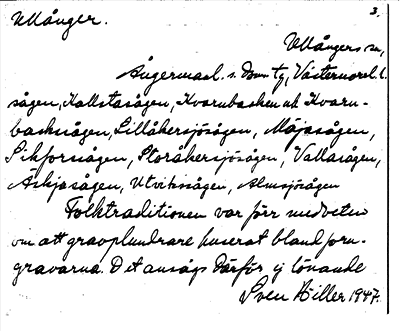 Ullånger. 3.
Ullångers sn,
Ångermanl. s. dom. tg, Västernorrl. l.
sågen, Kallstasågen, Kvarnbacken och Kvarn-
backsågen, Lillåkersjösågen, Mäjasågen,
Sikforssågen, Storåkersjösågen, Vallasågen,
Askjasågen, Utviksågen, Almsjösågen
Folktraditionen var förr medveten
om att gravplundrare huserat bland forn-
gravarna. Det ansågs därför ej lönande
Sven Hiller 1947.